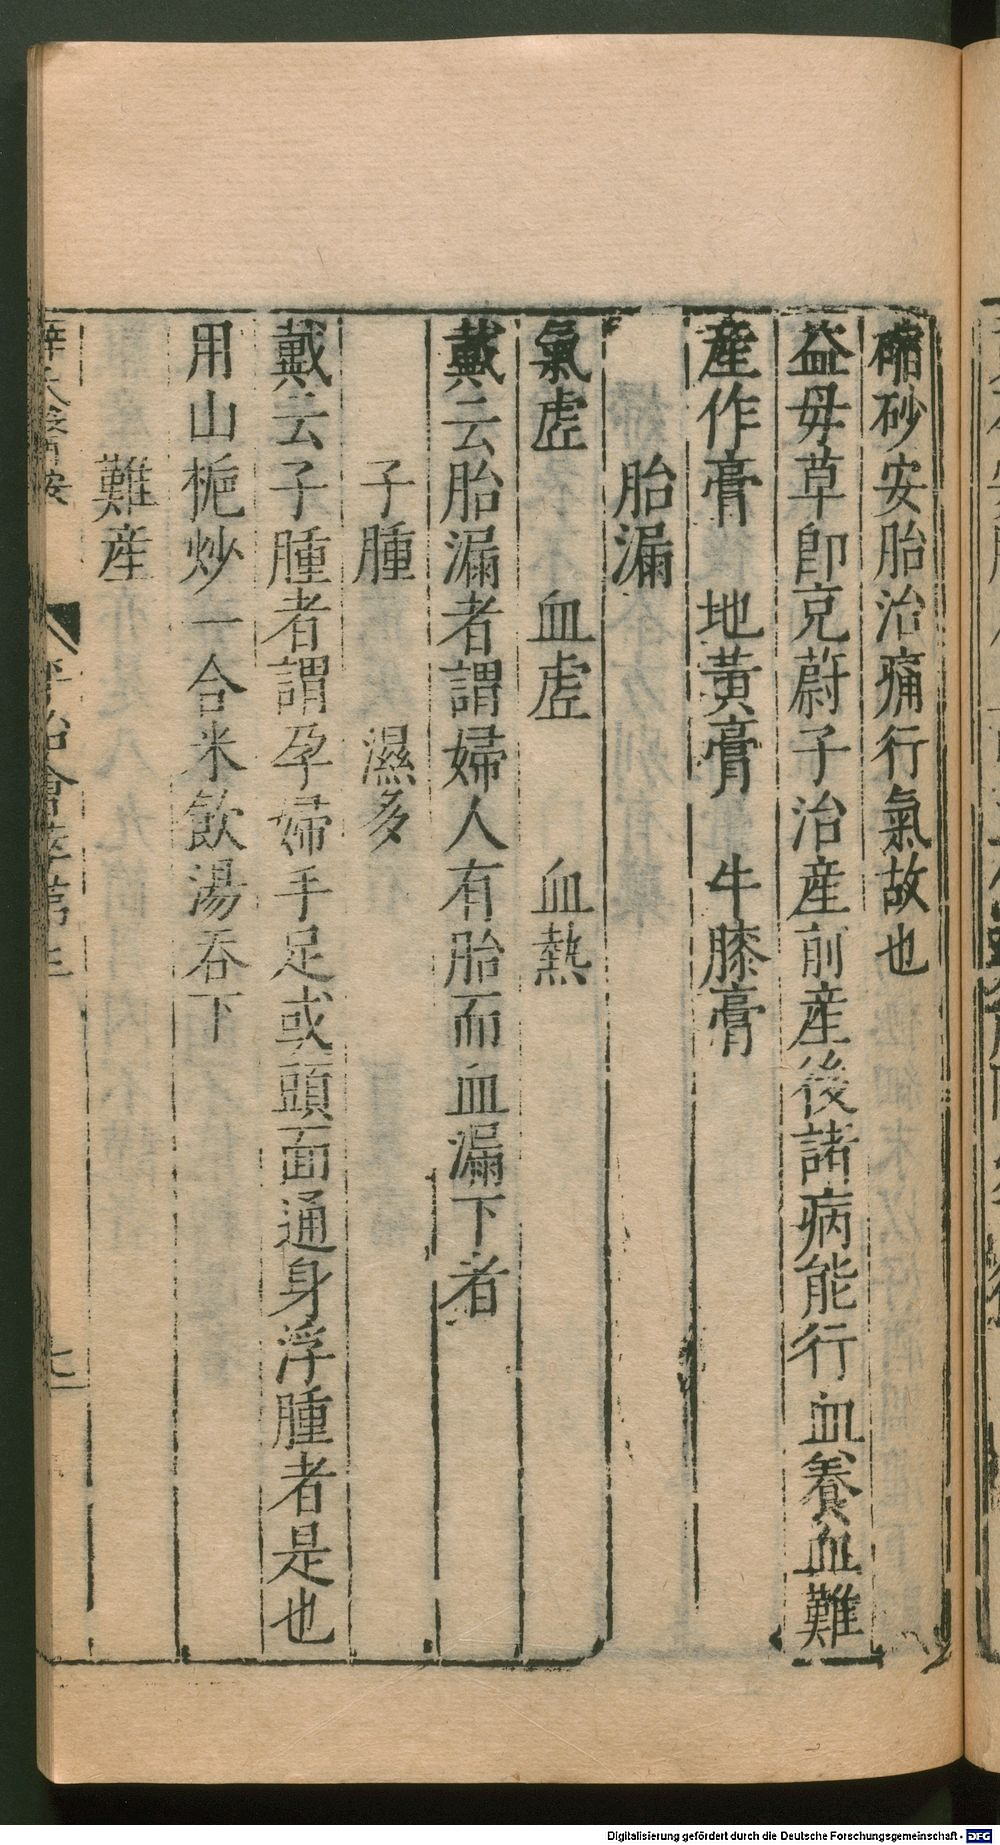 砂安胎治痛行氣故也
益母草卽充蔚子治產前產後諸病能行血養血難
產作膏　地黃膏　牛膝膏
胎漏
氣虛　血虛　血熱
戴云胎漏者謂婦人有胎而血漏下者
子腫　濕多
戴云子腫者謂孕婦手足或頭面通身浮腫者是也
用山梔炒一合米飲湯吞下
難產
Digitalisierung gefördert durch die Deutsche Forschungsgemeinschaft - DFG